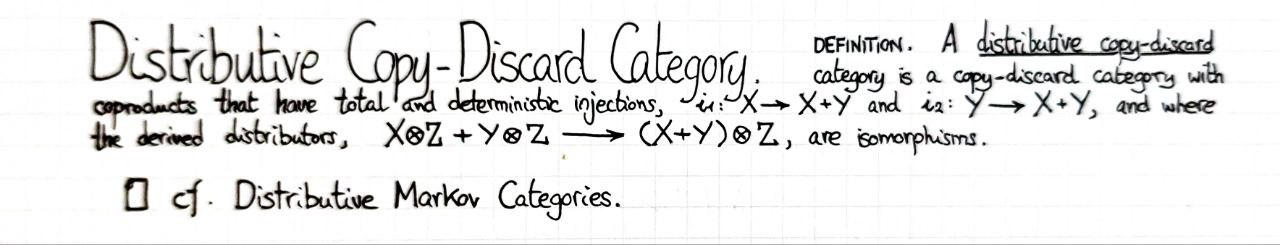 Distributive Copy-Discard Category. DEFINITION. A distributive copy-discard
category is a copy-discard category with
coproducts that have total and deterministic injections, i₁: X → X+Y and i₂: Y → X+Y, and where
the derived distributors, X⊗Z + Y⊗Z ⟶ (X+Y)⊗Z, are isomorphisms.
□ cf. Distributive Markov Categories.